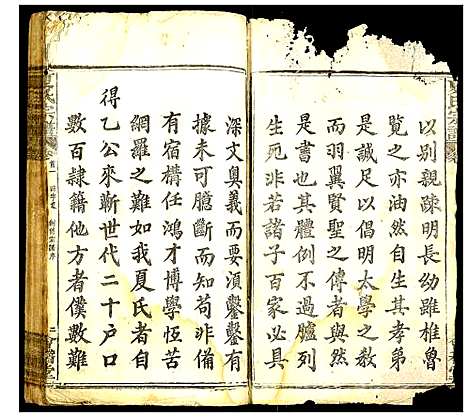 以別親疎明長幼雖椎魯
覽之亦油然自生其孝弟
是誠足以倡明太學之教
而羽翼賢聖之傳者與然
是其體例不過臚列
生死非若諸子百家必具
深文奧義而要須鑿鑿有
據未可臆斷而知苟非備
有宿構任鴻才博學恆苦
網羅之難如我夏氏者自
得乙公來蘄世代二十户口
數百隸籍他方者僕數難
氏宗譜
卷首一